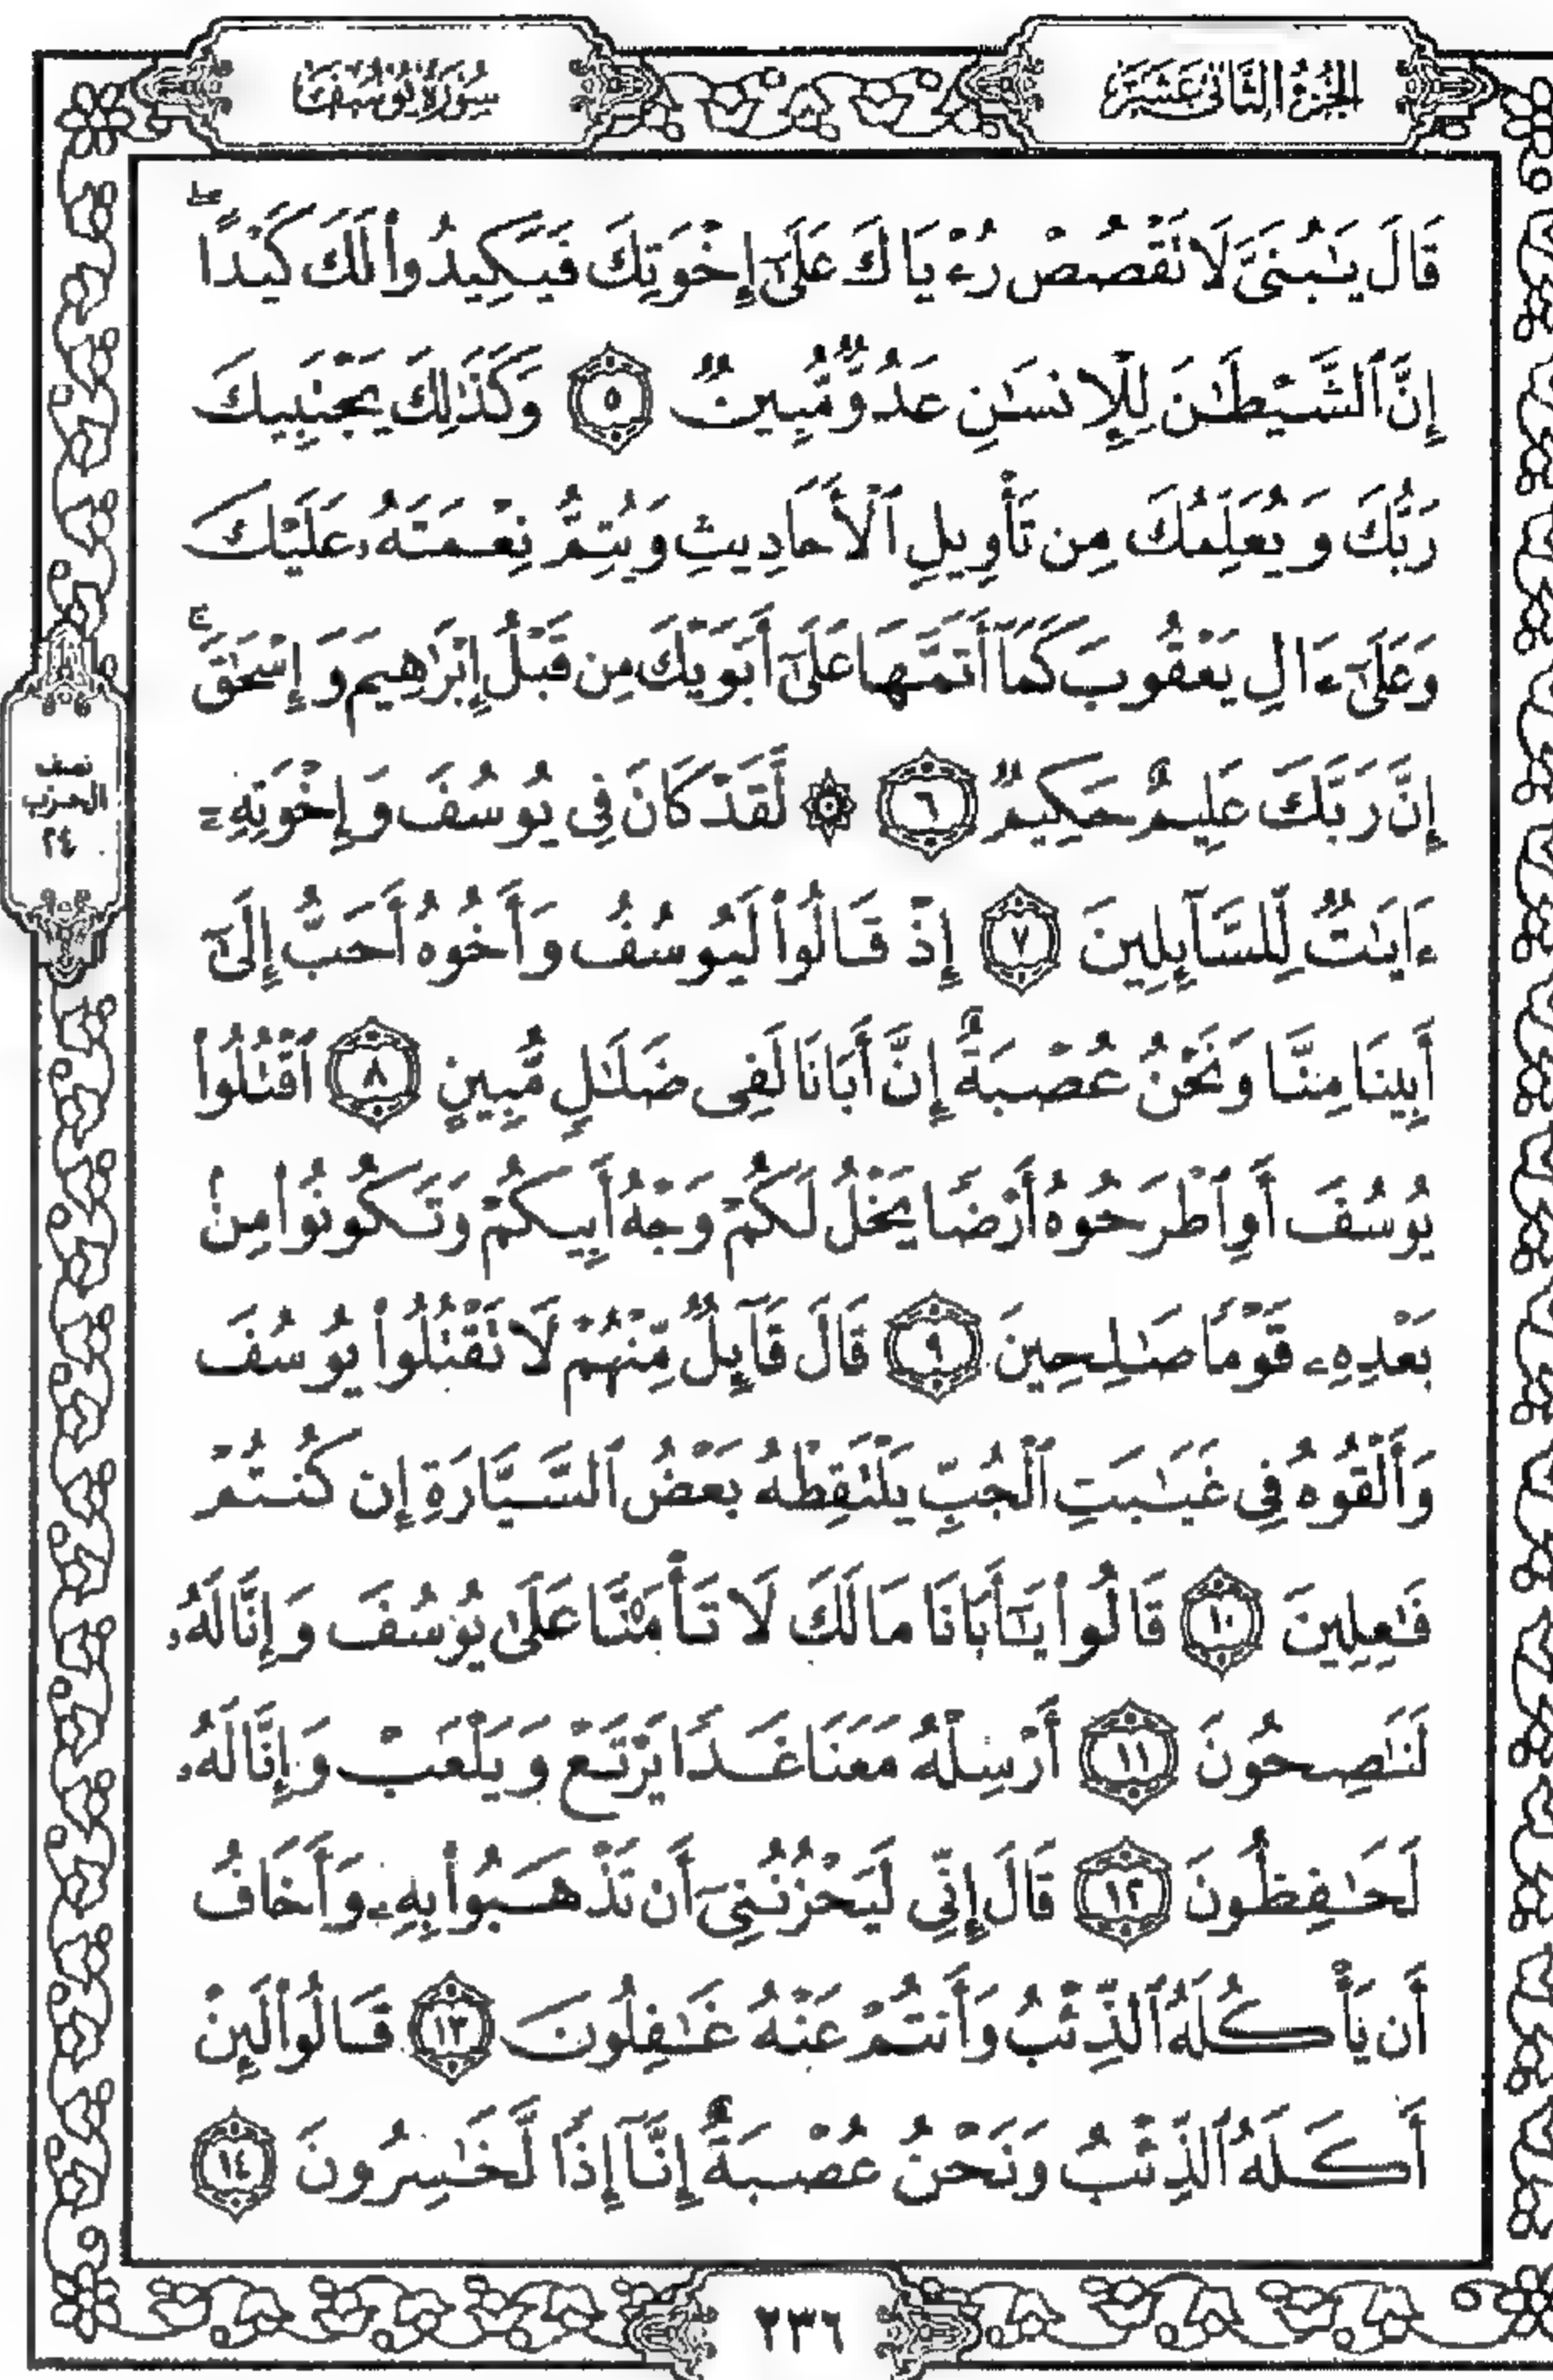 الجزء الثاني عشر
سورة يوسف
قَالَ يَـٰبُنَىَّ لَا تَقْصُصْ رُءْيَاكَ عَلَىٰٓ إِخْوَتِكَ فَيَكِيدُوا۟ لَكَ كَيْدًا ۖ
إِنَّ ٱلشَّيْطَـٰنَ لِلْإِنسَـٰنِ عَدُوٌّ مُّبِينٌ ٥ وَكَذَٰلِكَ يَجْتَبِيكَ
رَبُّكَ وَيُعَلِّمُكَ مِن تَأْوِيلِ ٱلْأَحَادِيثِ وَيُتِمُّ نِعْمَتَهُۥ عَلَيْكَ
وَعَلَىٰٓ ءَالِ يَعْقُوبَ كَمَآ أَتَمَّهَا عَلَىٰٓ أَبَوَيْكَ مِن قَبْلُ إِبْرَٰهِيمَ وَإِسْحَـٰقَ ۚ
إِنَّ رَبَّكَ عَلِيمٌ حَكِيمٌ ٦ ۞ لَّقَدْ كَانَ فِى يُوسُفَ وَإِخْوَتِهِۦٓ
ءَايَـٰتٌ لِّلسَّآئِلِينَ ٧ إِذْ قَالُوا۟ لَيُوسُفُ وَأَخُوهُ أَحَبُّ إِلَىٰٓ
أَبِينَا مِنَّا وَنَحْنُ عُصْبَةٌ إِنَّ أَبَانَا لَفِى ضَلَـٰلٍ مُّبِينٍ ٨ ٱقْتُلُوا۟
يُوسُفَ أَوِ ٱطْرَحُوهُ أَرْضًا يَخْلُ لَكُمْ وَجْهُ أَبِيكُمْ وَتَكُونُوا۟ مِنۢ
بَعْدِهِۦ قَوْمًا صَـٰلِحِينَ ٩ قَالَ قَآئِلٌ مِّنْهُمْ لَا تَقْتُلُوا۟ يُوسُفَ
وَأَلْقُوهُ فِى غَيَـٰبَتِ ٱلْجُبِّ يَلْتَقِطْهُ بَعْضُ ٱلسَّيَّارَةِ إِن كُنتُمْ
فَـٰعِلِينَ ١٠ قَالُوا۟ يَـٰٓأَبَانَا مَا لَكَ لَا تَأْمَ۫نَّا عَلَىٰ يُوسُفَ وَإِنَّا لَهُۥ
لَنَـٰصِحُونَ ١١ أَرْسِلْهُ مَعَنَا غَدًا يَرْتَعْ وَيَلْعَبْ وَإِنَّا لَهُۥ
لَحَـٰفِظُونَ ١٢ قَالَ إِنِّى لَيَحْزُنُنِىٓ أَن تَذْهَبُوا۟ بِهِۦ وَأَخَافُ
أَن يَأْكُلَهُ ٱلذِّئْبُ وَأَنتُمْ عَنْهُ غَـٰفِلُونَ ١٣ قَالُوا۟ لَئِنْ
أَكَلَهُ ٱلذِّئْبُ وَنَحْنُ عُصْبَةٌ إِنَّآ إِذًا لَّخَـٰسِرُونَ ١٤
نصف
الحزب
٢٤
٢٣٦